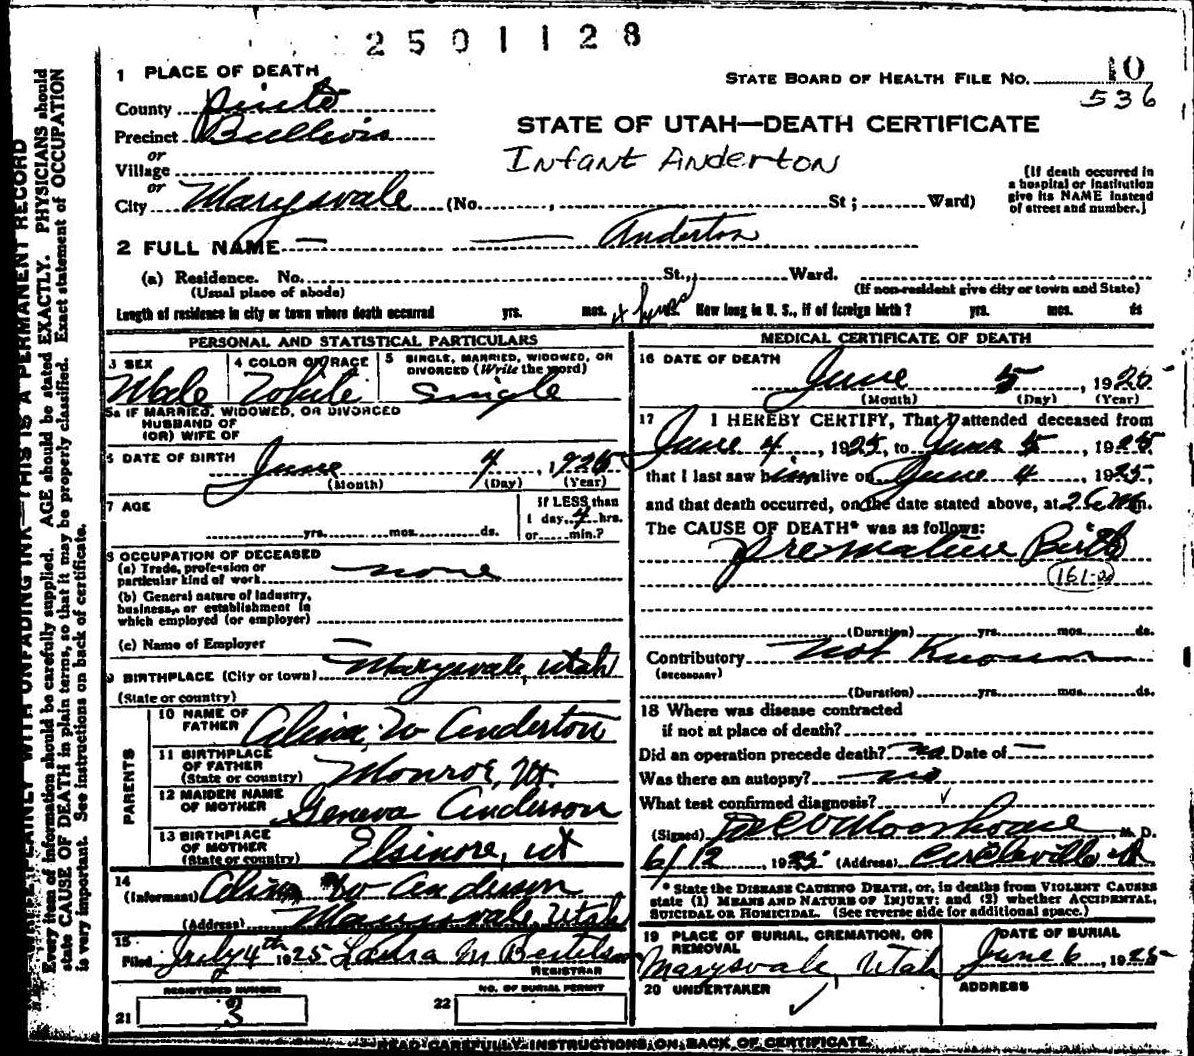 2501128
1 PLACE OF DEATH
STATE BOARD OF HEALTH FILE NO. 10
536
County Piute
Precinct Bullion
STATE OF UTAH—DEATH CERTIFICATE
or
Village
Infant Anderton
or
City Marysvale (No. , St; Ward)
(If death occurred in
a hospital or institution
give its NAME instead
of street and number.)
2 FULL NAME — — Anderton
(a) Residence. No. St., Ward.
(Usual place of abode)
(If non-resident give city or town and State)
Length of residence in city or town where death occurred yrs. mos. How long in U. S., if of foreign birth? yrs. mos. ds
PERSONAL AND STATISTICAL PARTICULARS
3 SEX
Male
4 COLOR OR RACE
White
5 SINGLE, MARRIED, WIDOWED, OR
DIVORCED (Write the word)
Single
5a IF MARRIED, WIDOWED, OR DIVORCED
HUSBAND OF
(OR) WIFE OF
6 DATE OF BIRTH June 4, 1925
(Month) (Day) (Year)
7 AGE
yrs. mos. ds.
If LESS than
1 day 4 hrs.
or min.?
8 OCCUPATION OF DECEASED
(a) Trade, profession or
particular kind of work none
(b) General nature of industry,
business, or establishment in
which employed (or employer)
(c) Name of Employer —
9 BIRTHPLACE (City or town) Marysvale, Utah
(State or country)
PARENTS
10 NAME OF
FATHER W Anderton
11 BIRTHPLACE
OF FATHER
(State or country) Monroe, Ut.
12 MAIDEN NAME
OF MOTHER Geneva Anderson
13 BIRTHPLACE
OF MOTHER
(State or country) Elsinore, Ut
14
(Informant) W Anderson
(Address) Marysvale, Utah
15
Filed July 4th 1925 Laura M Bertelsen
REGISTRAR
REGISTERED NUMBER
21 3
NO. OF BURIAL PERMIT
22
MEDICAL CERTIFICATE OF DEATH
16 DATE OF DEATH
June 5, 1925
(Month) (Day) (Year)
17 I HEREBY CERTIFY, That I attended deceased from
June 4, 1925, to June 5, 1925
that I last saw him alive on June 4, 1925,
and that death occurred, on the date stated above, at 2 a m.
The CAUSE OF DEATH* was as follows:
Premature Birth
161-a
(Duration) yrs. mos. ds.
Contributory Not Known
(SECONDARY)
(Duration) yrs. mos. ds.
18 Where was disease contracted
if not at place of death?
Did an operation precede death? no Date of —
Was there an autopsy? no
What test confirmed diagnosis?
(Signed) M. D.
6/12, 1925 (Address) Circleville Ut
* State the DISEASE CAUSING DEATH, or, in deaths from VIOLENT CAUSES
state (1) MEANS AND NATURE OF INJURY; and (2) whether ACCIDENTAL,
SUICIDAL OR HOMICIDAL. (See reverse side for additional space.)
19 PLACE OF BURIAL, CREMATION, OR
REMOVAL
Marysvale, Utah
DATE OF BURIAL
June 6, 1925
20 UNDERTAKER
ADDRESS
READ CAREFULLY INSTRUCTIONS ON BACK OF CERTIFICATE.
WRITE PLAINLY WITH UNFADING INK—THIS IS A PERMANENT RECORD
Every item of information should be carefully supplied. AGE should be stated EXACTLY. PHYSICIANS should
state CAUSE OF DEATH in plain terms, so that it may be properly classified. Exact statement of OCCUPATION
is very important. See instructions on back of certificate.